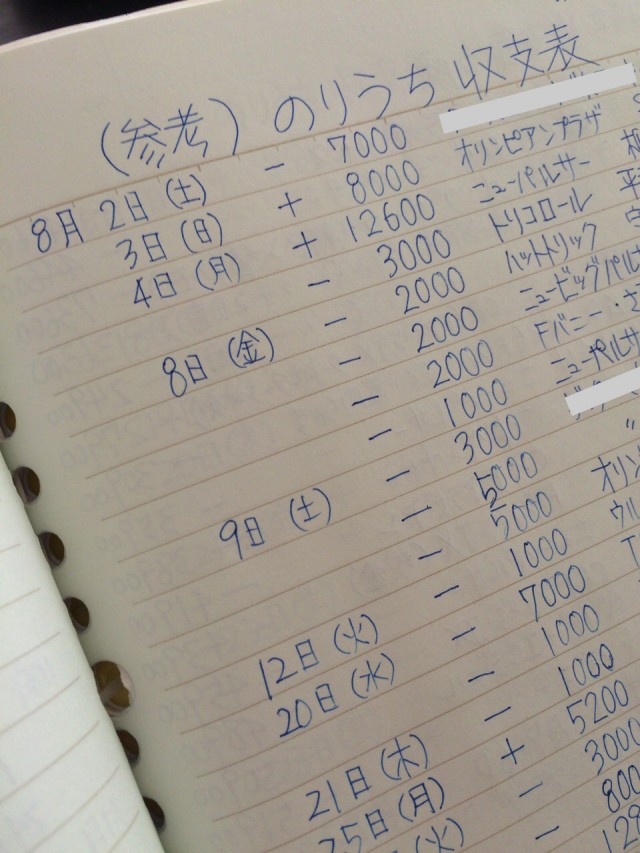 (参考) のりうち 収支表
8月 2日 (土) − 7000
3日 (日) + 8000 オリンピアンプラザ
4日 (月) + 12600 ニューパルサー
− 3000 トリコロール
8日 (金) − 2000 ハットトリック
− 2000 ニュービッグパル
− 2000 Fバニー・
− 1000 ニューパルサ
9日 (土) − 3000
− 5000 〃
− 5000 オリン
− 1000 ウル
12日 (火) − 7000 T
20日 (水) − 1000
− 1000
21日 (木) + 5200
25日 (月) − 3000
(火) − 800